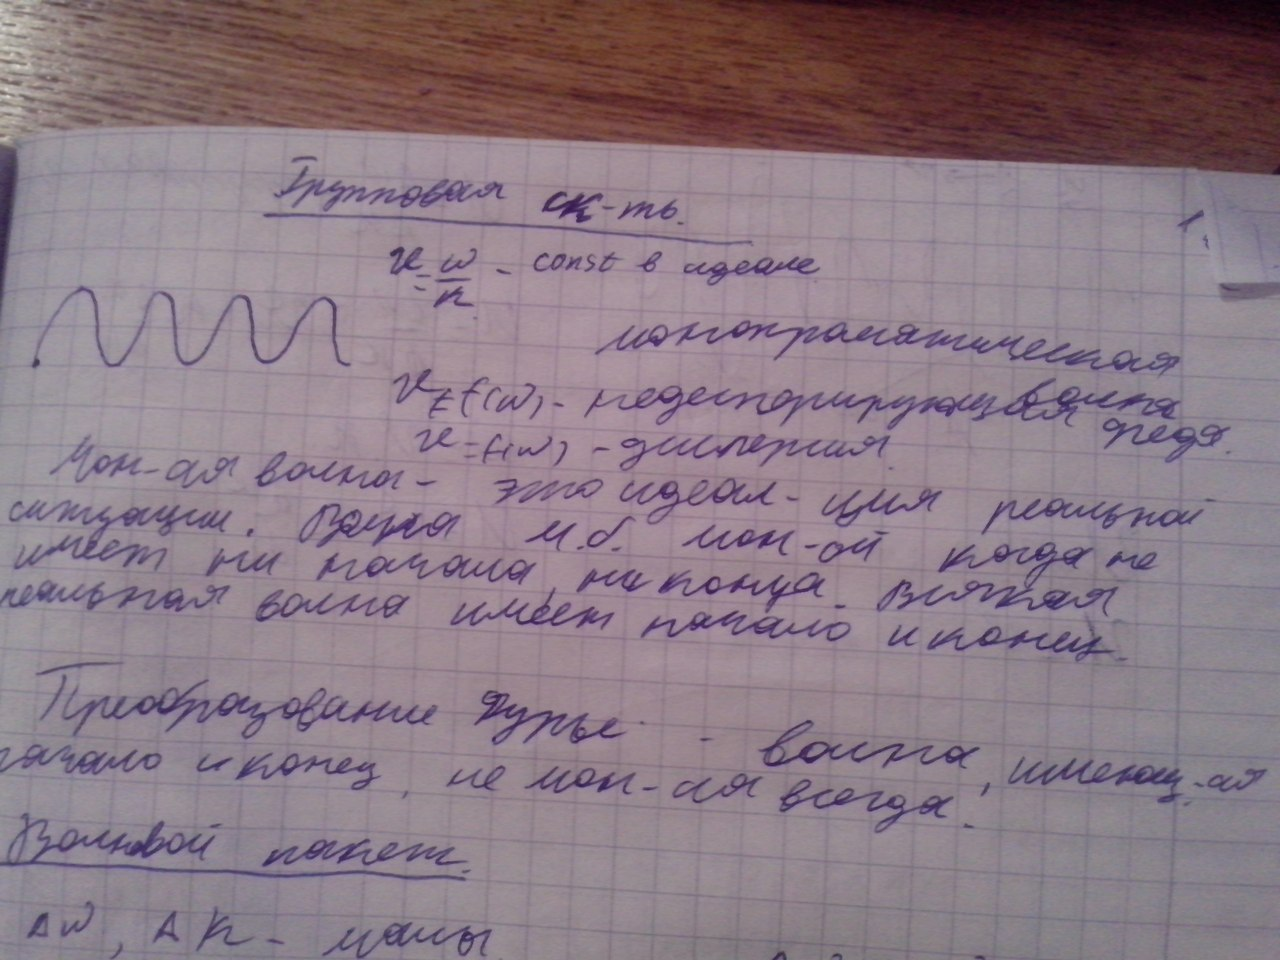 Групповая ск-ть.
1.
v = ω/k - const в идеале
монохроматическая
волна
v ≠ f(ω) - недеспергирующая среда.
v = f(ω) - дисперсия.
Мон-ая волна - это идеал-ция реальной
ситуации. Волна м.б. мон-ой когда не
имеет ни начала, ни конца. Всякая
реальная волна имеет начало и конец.
Преобразование Фурье - волна, имеющ-ая
начало и конец, не мон-ая всегда.
Волновой пакет.
Δω, Δk - малы